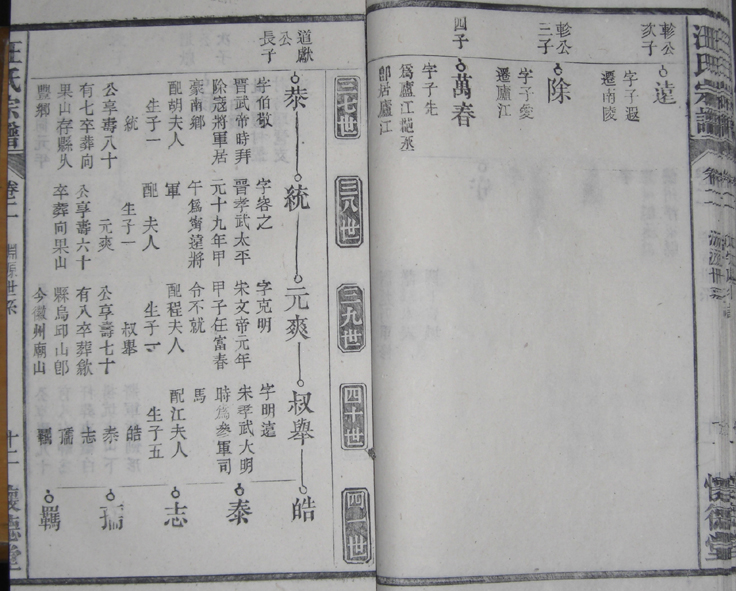 軫公
次子
遠
字子遐
遷南陵
軫公
三子
除
字子愛
遷廬江
四子
萬春
字子先
為廬江尉丞
卽居廬江
懷德堂
三七世
三八世
三九世
四十世
四一世
道獻
公
長子
恭
字伯敬
晉武帝時拜
除寇將軍居
豪南鄉
配胡夫人
生子一
統
公享壽八十
有七卒葬向
果山存縣从
豐鄉
統
字容之
晉孝武太平
元十九年甲
午為甯遠將
軍
配 夫人
生子一
元爽
公享壽六十
卒葬向果山
元爽
字克明
宋文帝元年
甲子任富春
令不就
配程夫人
生子一
叔舉
公享壽七十
有八卒葬歙
縣烏邱山卽
今徽州廟山
叔舉
字明遠
宋孝武大明
時為參軍司
馬
配江夫人
生子五
皓
泰
志
孺
羈
皓
泰
志
孺
羈
汪氏宗譜
卷二
淵源世系
十二
懷德堂